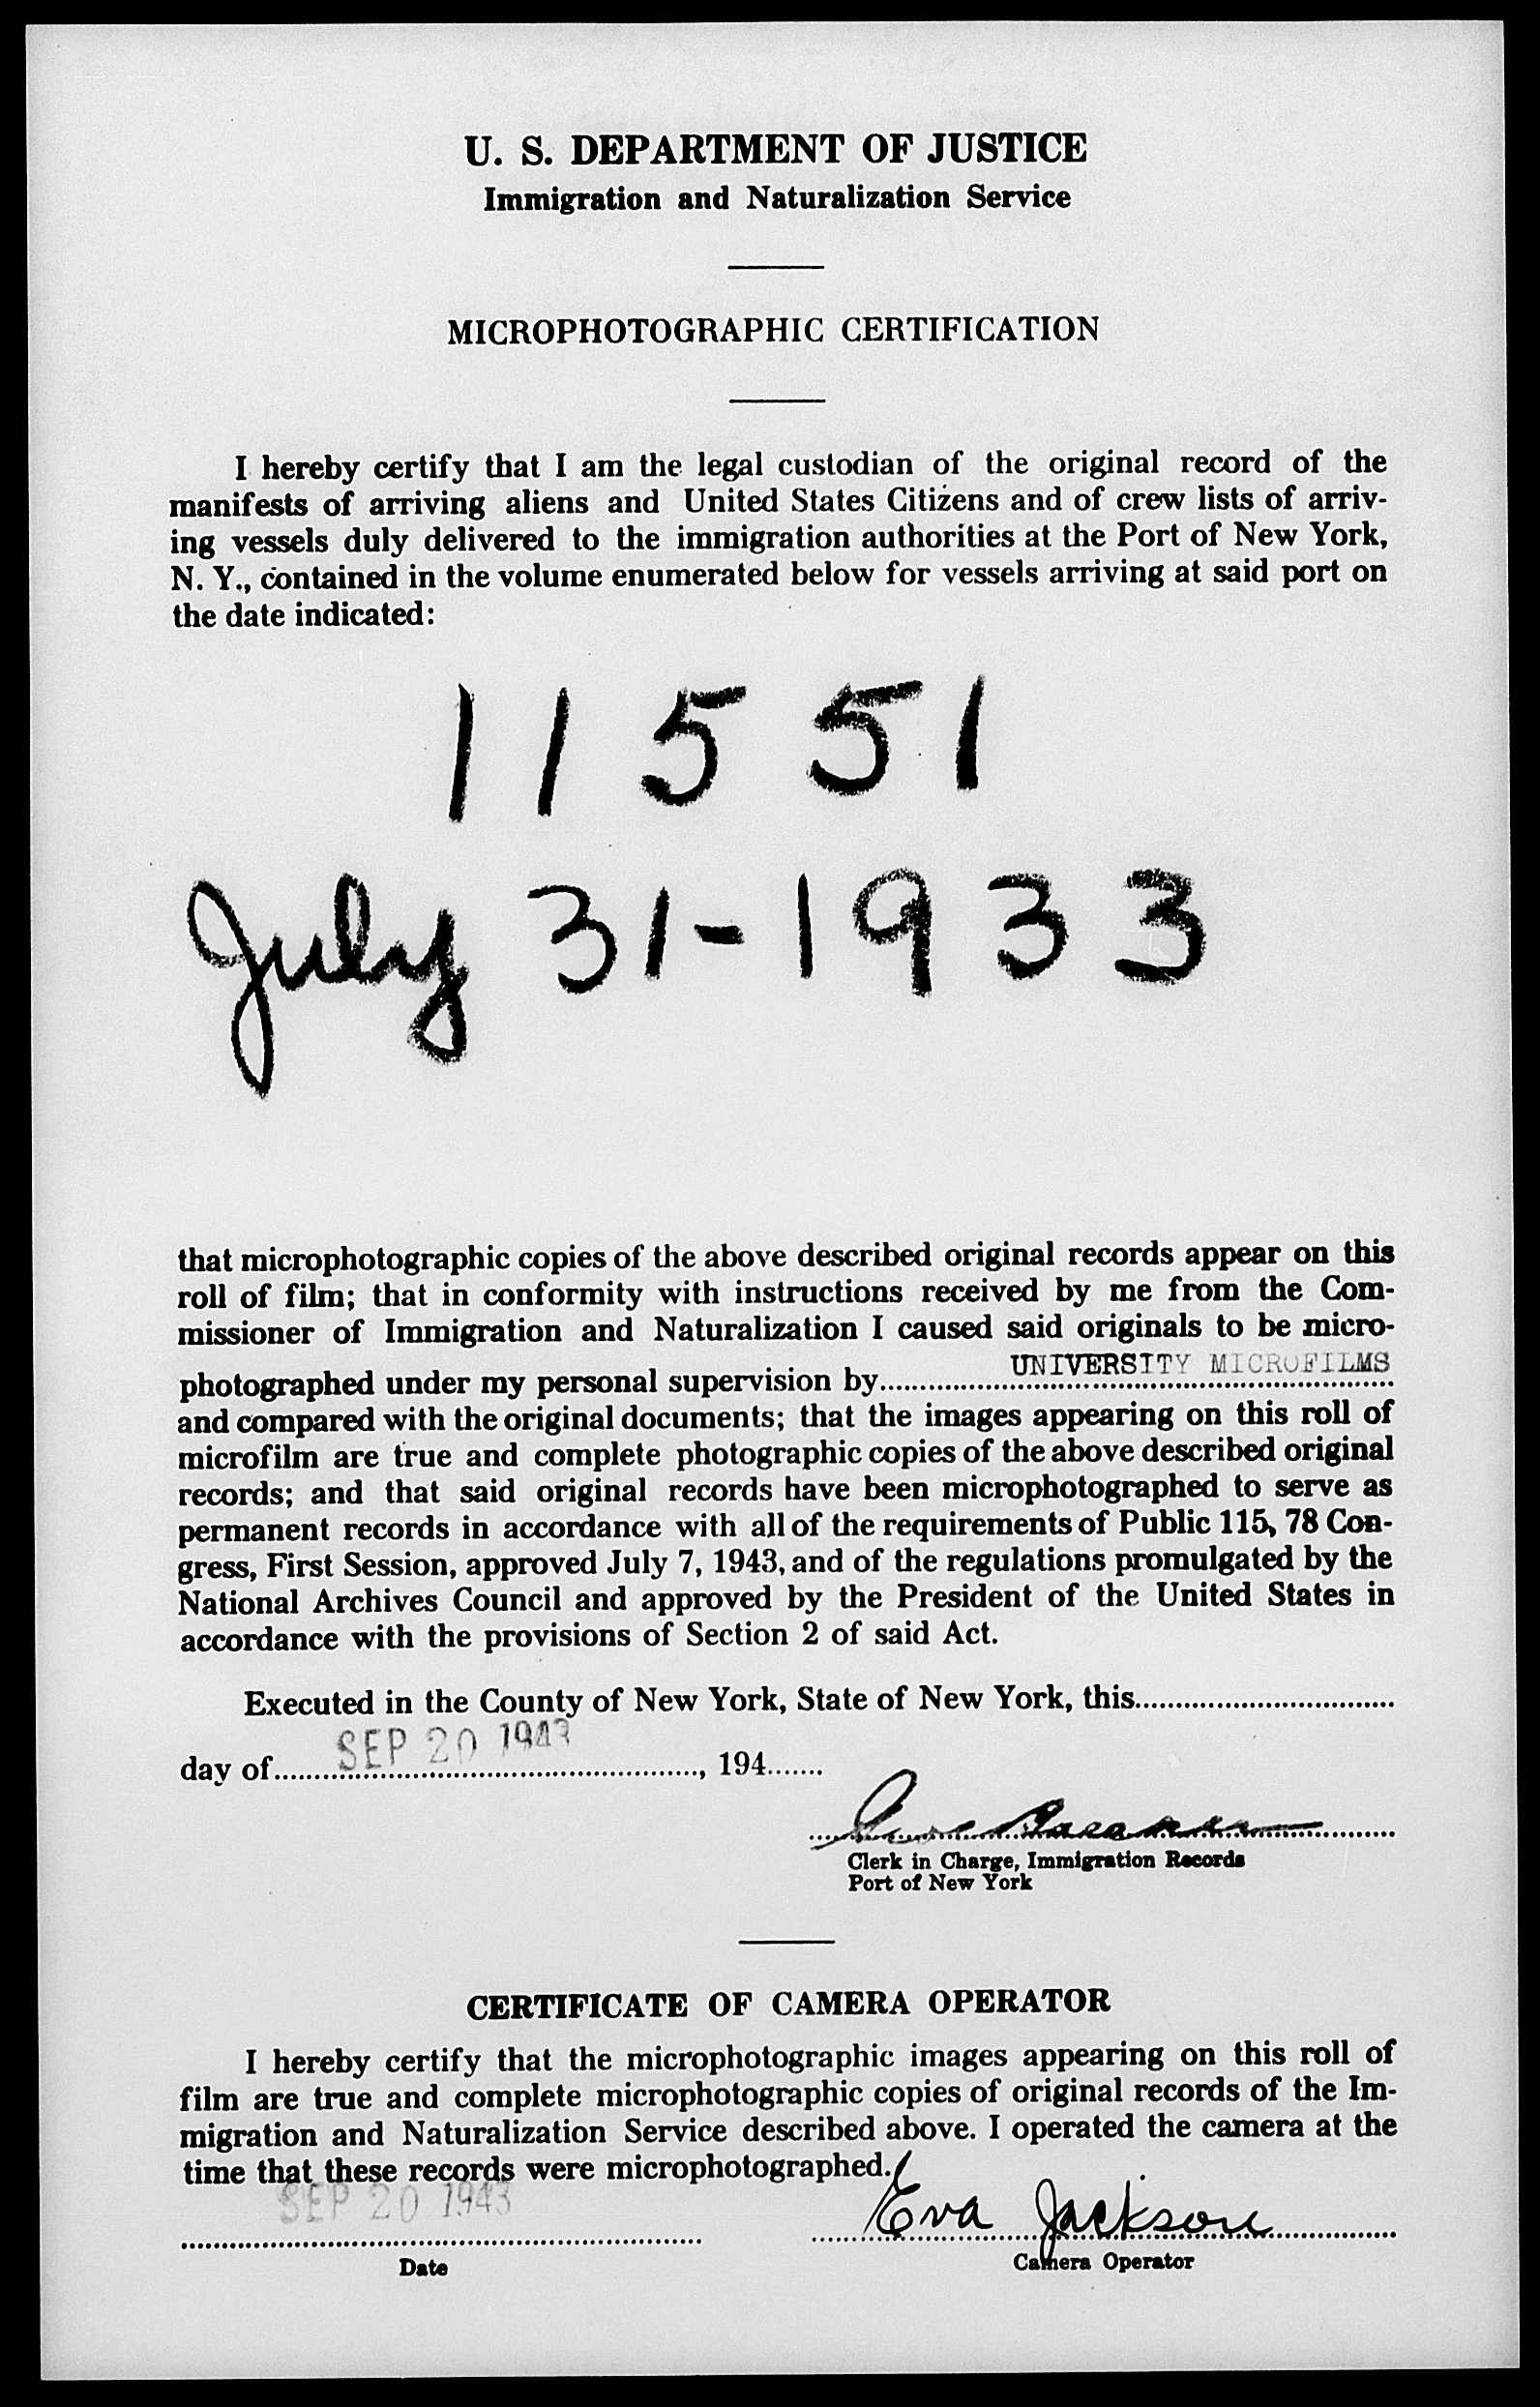 U. S. DEPARTMENT OF JUSTICE
Immigration and Naturalization Service
MICROPHOTOGRAPHIC CERTIFICATION
I hereby certify that I am the legal custodian of the original record of the
manifests of arriving aliens and United States Citizens and of crew lists of arriv-
ing vessels duly delivered to the immigration authorities at the Port of New York,
N. Y., contained in the volume enumerated below for vessels arriving at said port on
the date indicated:
11551
July 31-1933
that microphotographic copies of the above described original records appear on this
roll of film; that in conformity with instructions received by me from the Com-
missioner of Immigration and Naturalization I caused said originals to be micro-
photographed under my personal supervision by UNIVERSITY MICROFILMS
and compared with the original documents; that the images appearing on this roll of
microfilm are true and complete photographic copies of the above described original
records; and that said original records have been microphotographed to serve as
permanent records in accordance with all of the requirements of Public 115, 78 Con-
gress, First Session, approved July 7, 1943, and of the regulations promulgated by the
National Archives Council and approved by the President of the United States in
accordance with the provisions of Section 2 of said Act.
Executed in the County of New York, State of New York, this
day of SEP 20 1943, 194
Clerk in Charge, Immigration Records
Port of New York
CERTIFICATE OF CAMERA OPERATOR
I hereby certify that the microphotographic images appearing on this roll of
film are true and complete microphotographic copies of original records of the Im-
migration and Naturalization Service described above. I operated the camera at the
time that these records were microphotographed.
SEP 20 1943 Eva Jackson
Date Camera Operator